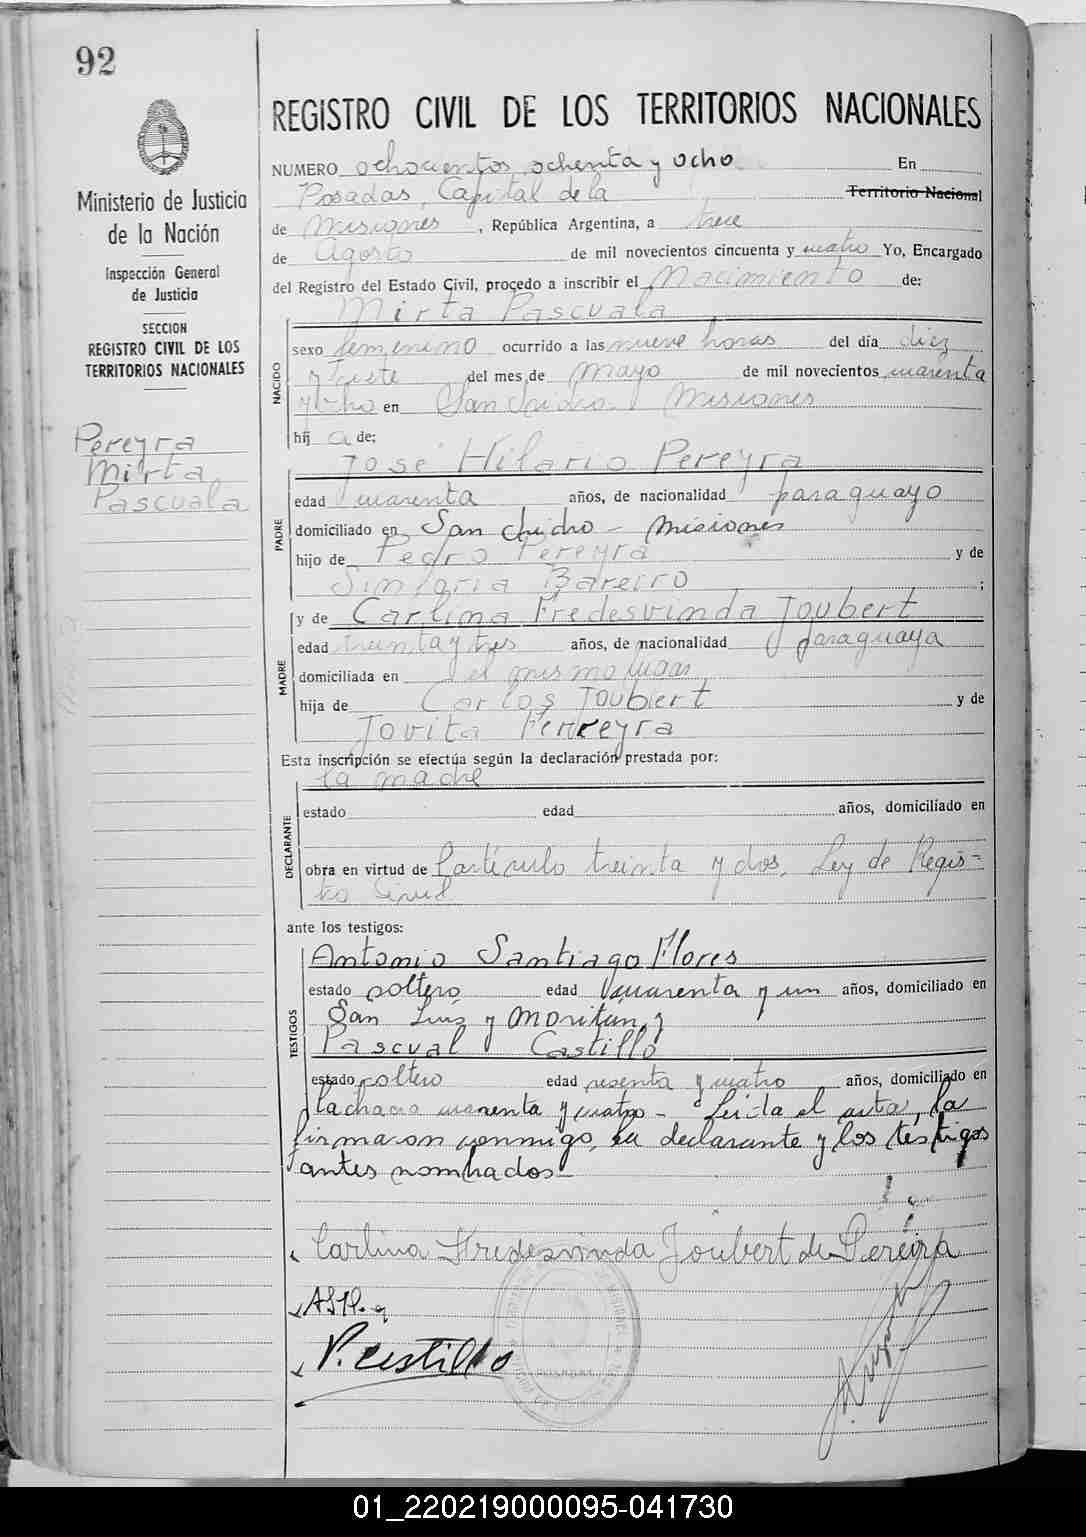 92
REGISTRO CIVIL DE LOS TERRITORIOS NACIONALES
Ministerio de Justicia
de la Nación
Inspección General
de Justicia
SECCION
REGISTRO CIVIL DE LOS
TERRITORIOS NACIONALES
Pereyra
Mirta
Pascuala
NUMERO ochocientos ochenta y ocho En
Posadas, Capital de la Territorio Nacional
de Misiones, República Argentina, a trece
de Agosto de mil novecientos cincuenta y cuatro Yo, Encargado
del Registro del Estado Civil, procedo a inscribir el Nacimiento de:
NACIDO
Mirta Pascuala
sexo femenino ocurrido a las nueve horas del día diez
y siete del mes de mayo de mil novecientos cuarenta
y ocho en San Isidro Misiones
hij a de:
PADRE
José Hilario Pereyra
edad cuarenta años, de nacionalidad paraguayo
domiciliado en San Isidro - Misiones
hijo de Pedro Pereyra y de
Sinforia Bareiro ;
MADRE
y de Carlina Fredesvinda Joubert
edad treinta y tres años, de nacionalidad paraguaya
domiciliada en el mismo lugar
hija de Carlos Joubert y de
Jovita Ferreyra
Esta inscripción se efectúa según la declaración prestada por:
DECLARANTE
la madre
estado edad años, domiciliado en
obra en virtud de l'artículo treinta y dos, Ley de Regis-
tro Civil
ante los testigos:
TESTIGOS
Antonio Santiago Flores
estado soltero edad cuarenta y un años, domiciliado en
San Luis y
Pascual Castillo
estado soltero edad sesenta y cuatro años, domiciliado en
la chacra cuarenta y cuatro - Leida el acta, la
firmaron conmigo, la declarante y los testigos
antes nombrados
Carlina Fredesvinda Joubert de Pereira
P. Castillo
POSADAS
01_220219000095-041730